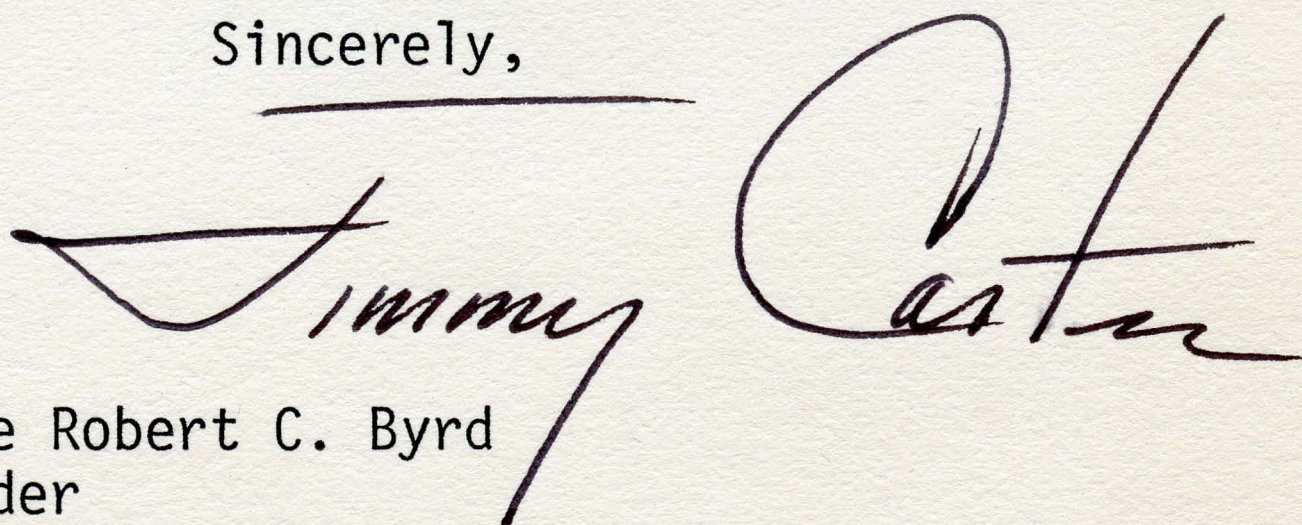 Sincerely,
Jimmy Carter
e Robert C. Byrd
der